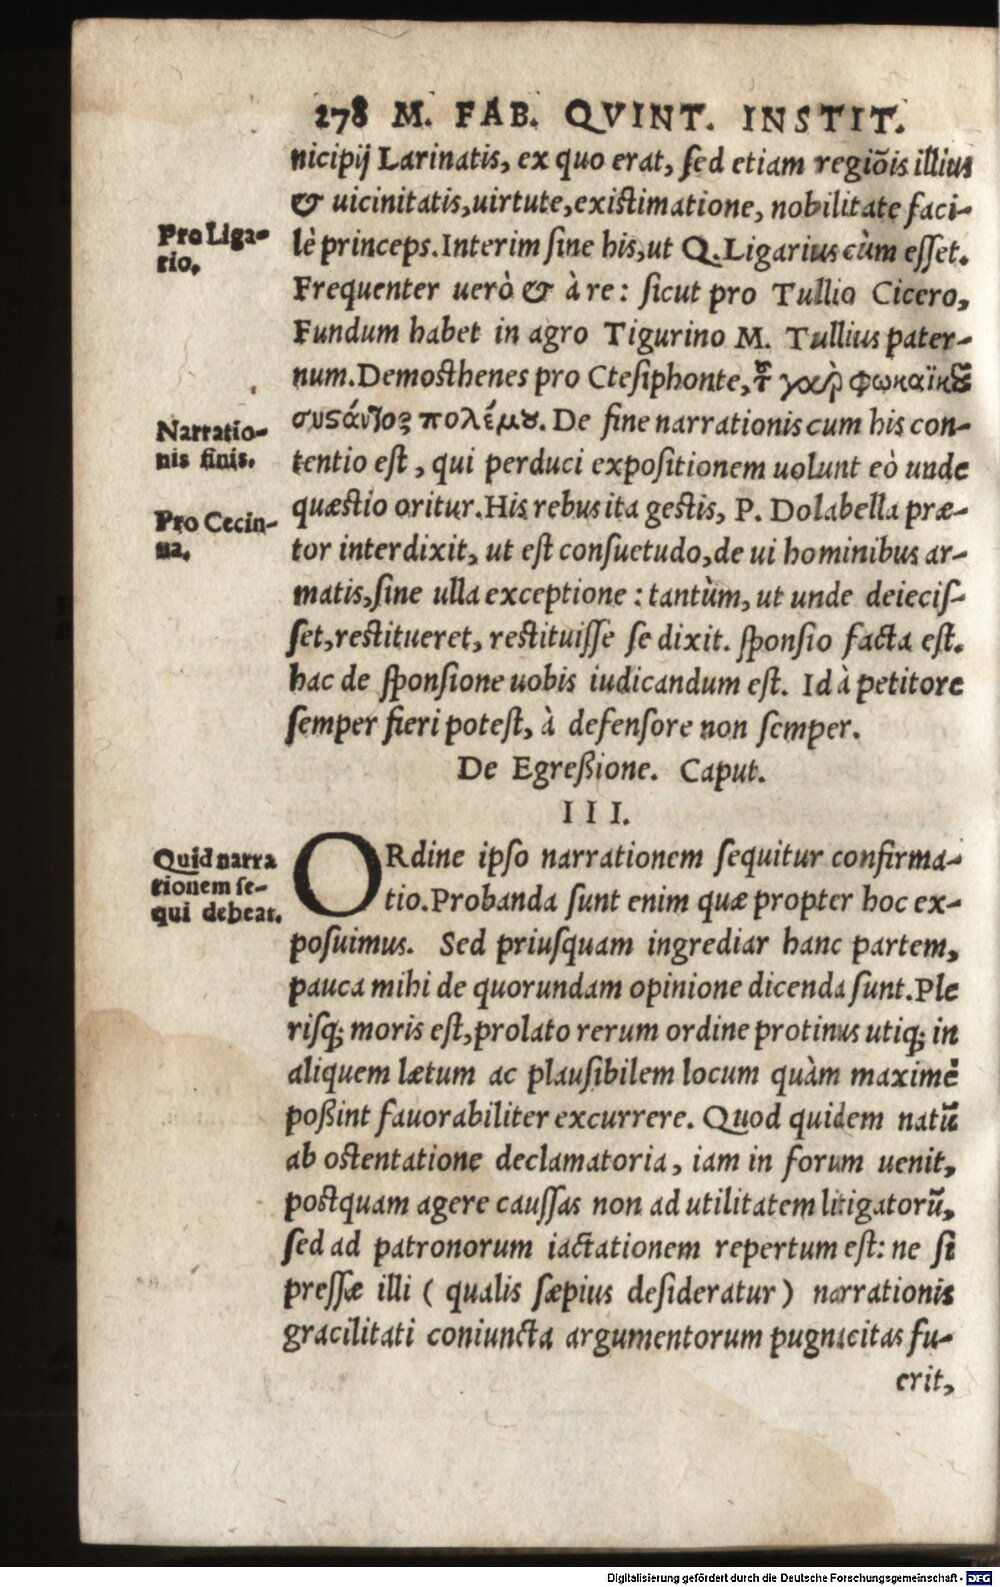 278 M. FAB. QVINT. INSTIT.
nicipij Larinatis, ex quo erat, sed etiam regiõis illius
& uicinitatis, uirtute, existimatione, nobilitate faci-
lè princeps. Interim sine his, ut Q. Ligarius cùm esset.
Frequenter uerò & à re: sicut pro Tullio Cicero,
Fundum habet in agro Tigurino M. Tullius pater-
num. Demosthenes pro Ctesiphonte, τῦ γὰρ φωκαϊκῦ
συςάντος πολέμȣ. De fine narrationis cum his con-
tentio est, qui perduci expositionem uolunt eò unde
quæstio oritur. His rebus ita gestis, P. Dolabella præ-
tor interdixit, ut est consuetudo, de ui hominibus ar-
matis, sine ulla exceptione: tantùm, ut unde deiecis-
set, restitueret, restituisse se dixit. sponsio facta est.
hac de sponsione uobis iudicandum est. Id à petitore
semper fieri potest, à defensore non semper.
De Egreßione. Caput.
III.
ORdine ipso narrationem sequitur confirma-
tio. Probanda sunt enim quæ propter hoc ex-
posuimus. Sed priusquam ingrediar hanc partem,
pauca mihi de quorundam opinione dicenda sunt. Ple
risq; moris est, prolato rerum ordine protinus utiq; in
aliquem lætum ac plausibilem locum quàm maximè
poßint fauorabiliter excurrere. Quod quidem natũ
ab ostentatione declamatoria, iam in forum uenit,
postquam agere caussas non ad utilitatem litigatorũ,
sed ad patronorum iactationem repertum est: ne si
pressæ illi (qualis sæpius desideratur) narrationis
gracilitati coniuncta argumentorum pugnacitas fu-
erit,
Pro Liga-
rio.
Narratio-
nis finis.
Pro Cecin-
na.
Quid narra
tionem se-
qui debeat.
Digitalisierung gefördert durch die Deutsche Forschungsgemeinschaft - DFG